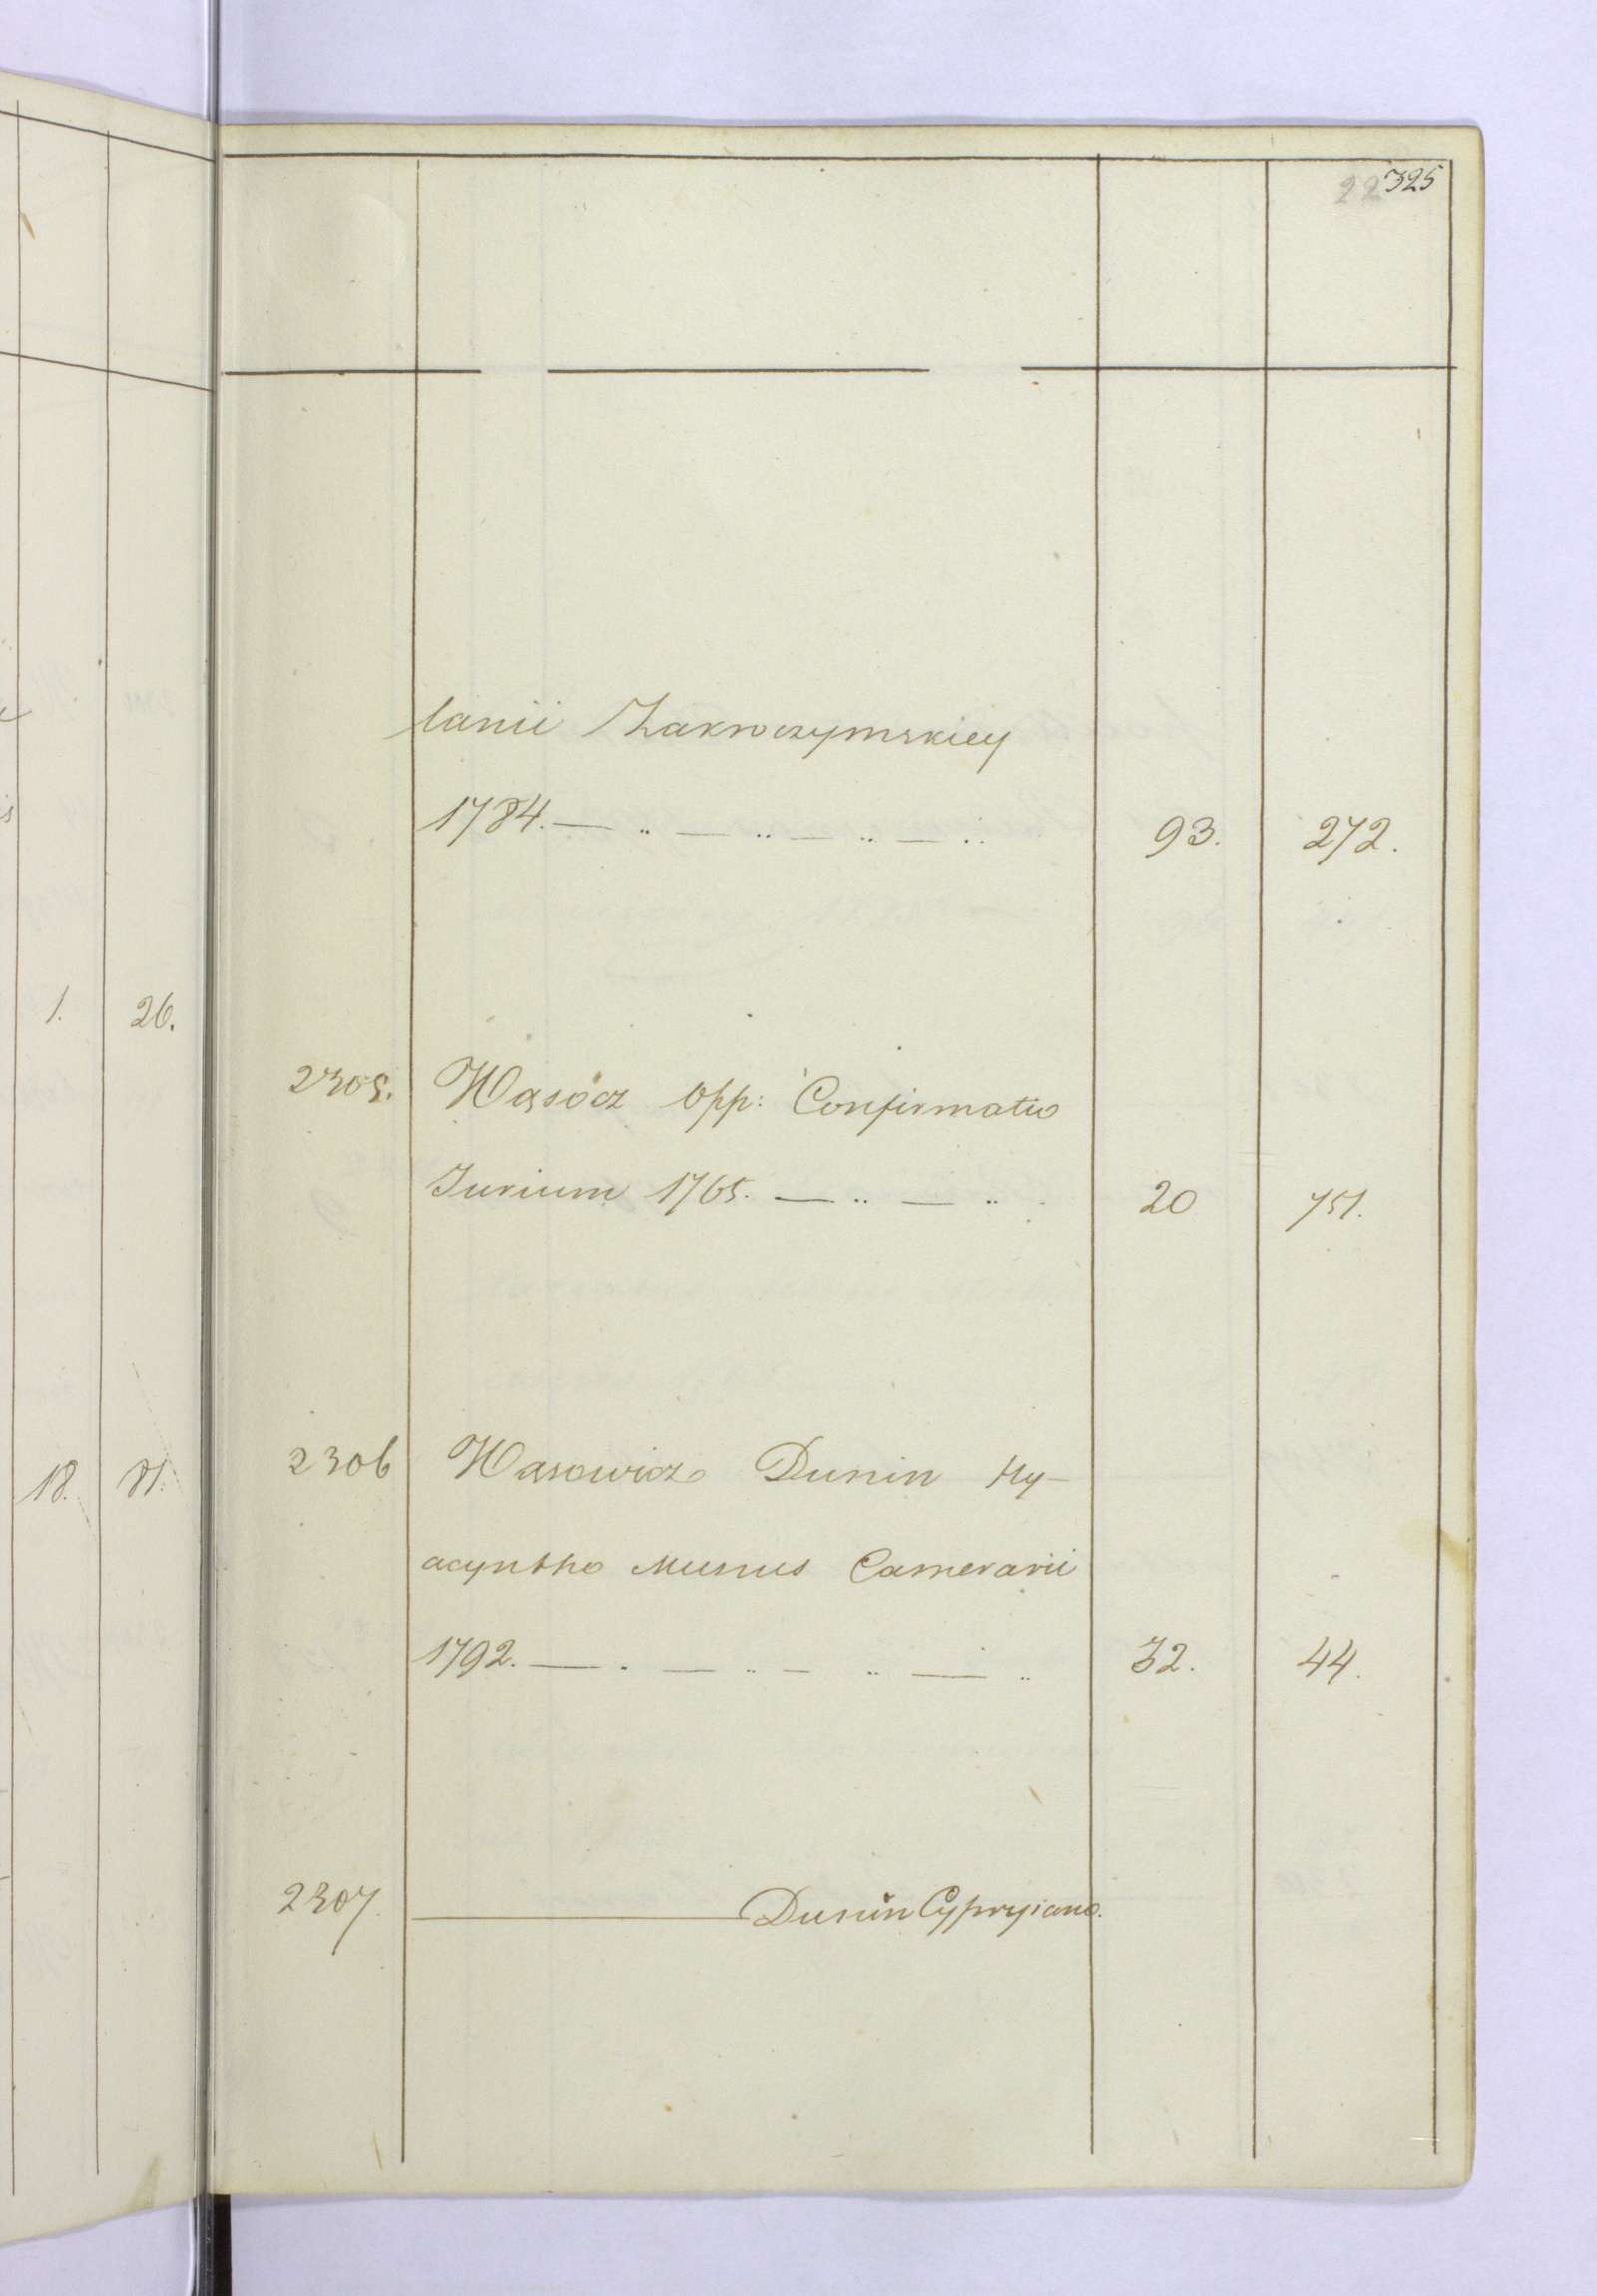 325
22
lanii Zakroczymskiey
1784. — .. — .. — .. — .. 93. 272.
1. 26.
2305. Wąsocz Opp: Confirmatio
Jurium 1765. — .. — .. 20 751.
18. 81.
2306 Wąsowicz Dunin Hy-
acyntho Munus Camerarii
1792. — . — .. — .. — .. 32. 44.
2307. ——— Dunin Cypryiano.